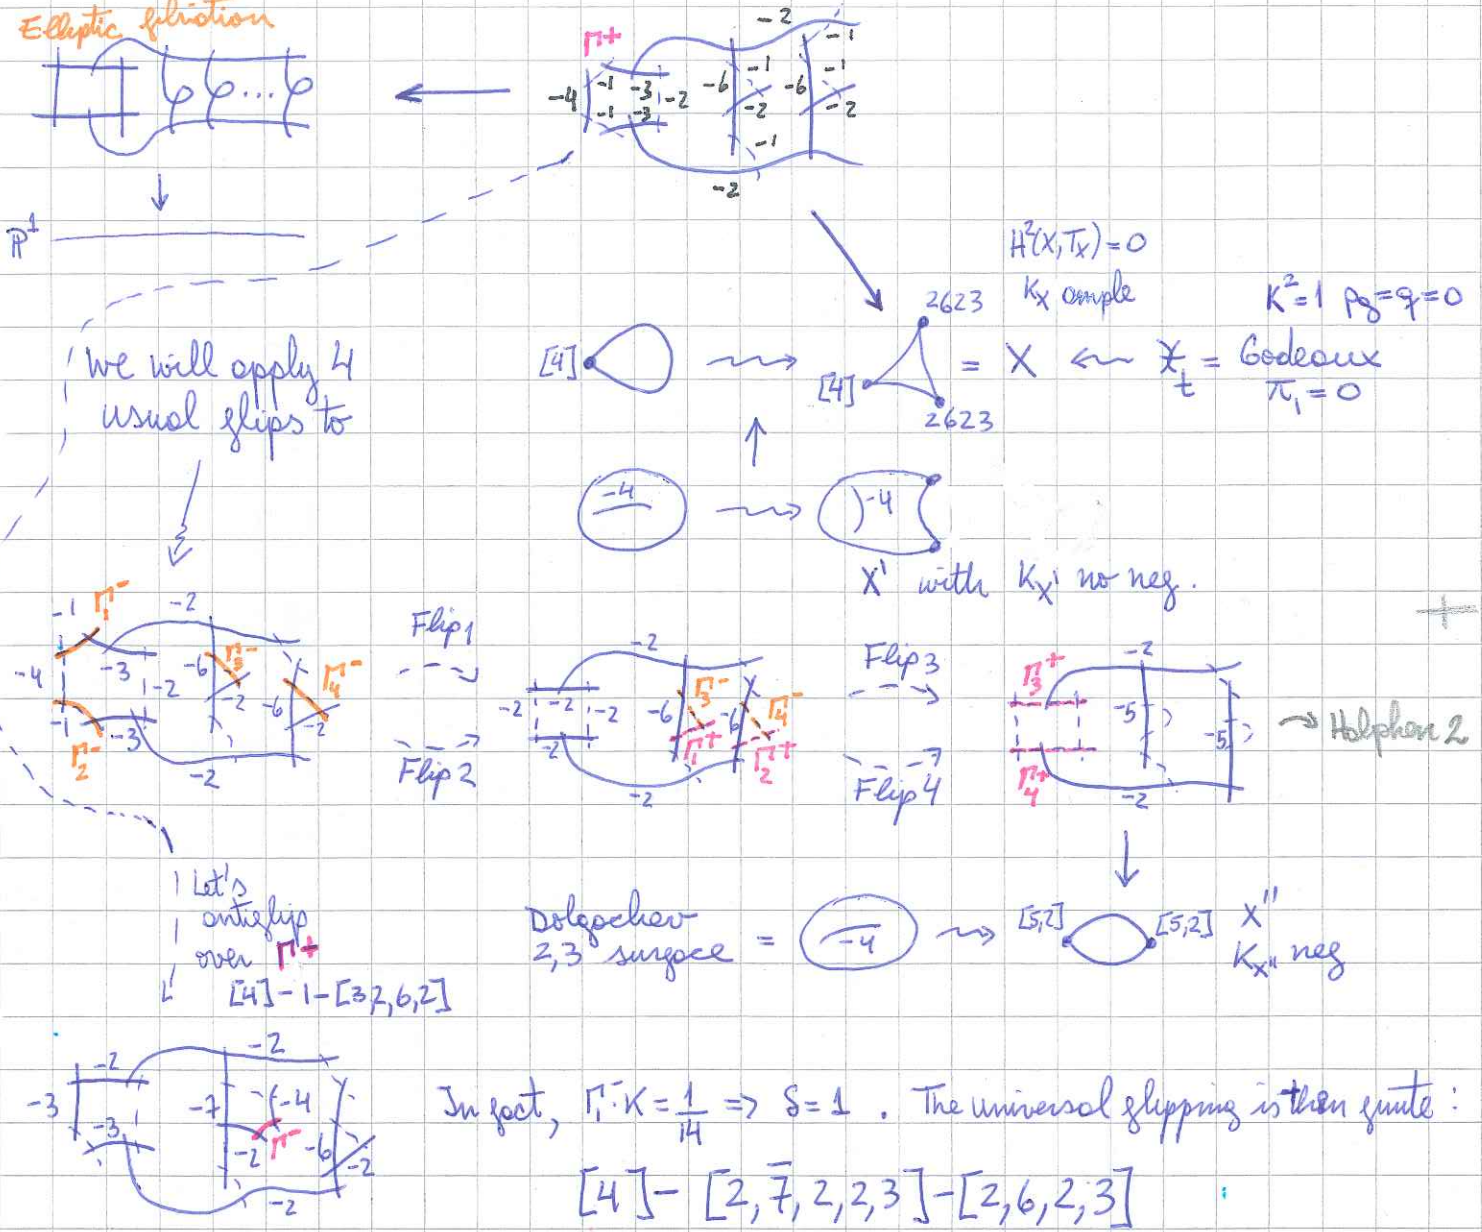 Elliptic fibration
P¹
Γ+
-4
-1
-1
-3
-3
-2
-6
-1
-2
-1
-6
-1
-1
-2
-2
-2
H²(X,Tx)=0
Kx ample
K²=1 pg=q=0
2623
[4]
[4]
2623
= X ← X_t = Godeaux
π₁=0
We will apply 4
usual flips to
-4
-4
X' with Kx' no neg.
-1
Γ₁⁻
-2
-4
-3
-2
-6
Γ₃⁻
-2
-6
Γ₄⁻
-2
-1
Γ₂⁻
-3
-2
Flip1
Flip 2
-2
-2
-2
-2
-6
Γ₃⁻
-6
Γ₄⁻
-2
Γ₁+
Γ₂+
-2
Flip 3
Flip 4
-2
Γ₃+
-5
-5
Γ₄+
-2
→ Halphen 2
Let's
antiflip
over Γ+
[4]-1-[3,2,6,2]
Dolgachev
2,3 surface =
-4
[5,2]
[5,2]
X''
Kx'' neg
-2
-2
-3
-7
-4
-3
-2
Γ⁻
-6
-2
-2
In fact, Γ₁⁻·K = 1/14 => δ=1. The universal flipping is then finite:
[4]-[2,7̄,2,2,3]-[2,6,2,3]